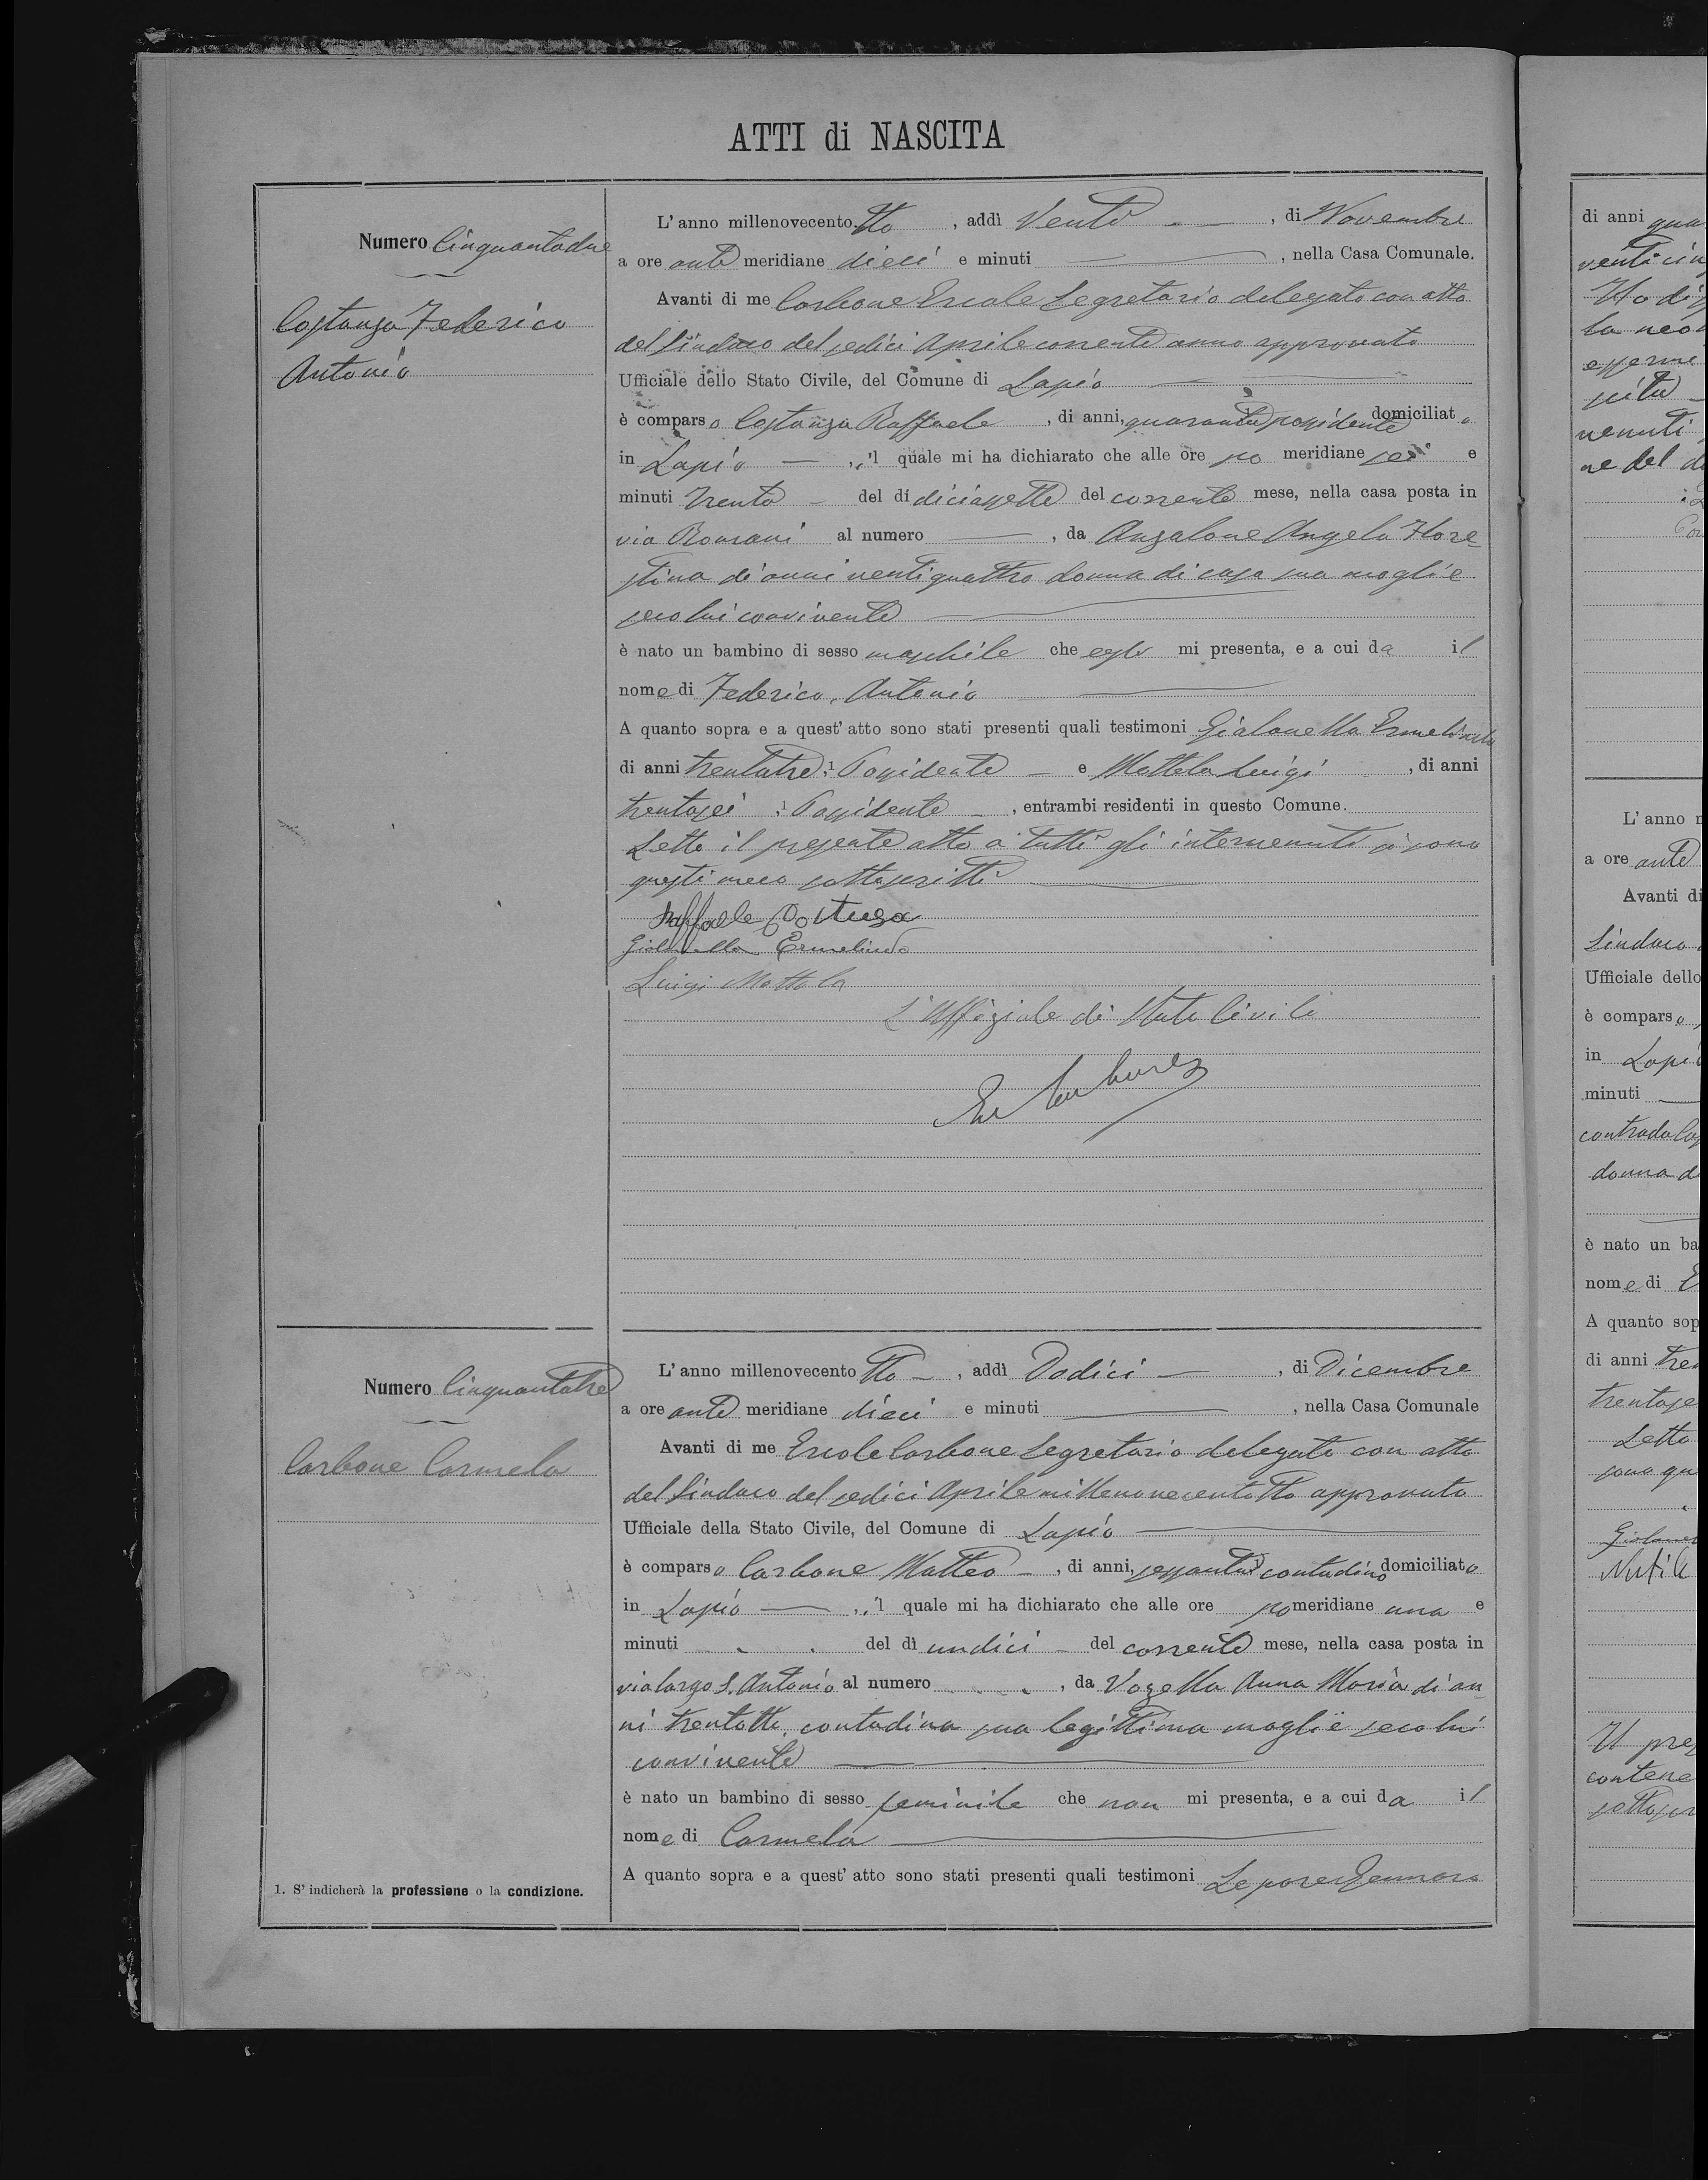 ATTI di NASCITA
Numero Cinquantadue
Costanza Federico
Antonio
L'anno millenovecento otto, addì Venti, di Novembre
a ore ante meridiane dieci e minuti, nella Casa Comunale.
Avanti di me Carbone Ercole Segretario delegato con atto
del Sindaco del sedici Aprile corrente anno approvato
Ufficiale dello Stato Civile, del Comune di Lapio
è comparso Costanza Raffaele, di anni, quaranta possidente domiciliato
in Lapio, il quale mi ha dichiarato che alle ore po meridiane sei e
minuti trenta del dì diciassette del corrente mese, nella casa posta in
via Romani al numero, da Anzalone Angela Flore=
stina di anni ventiquattro donna di casa sua moglie
seco lui convivente
è nato un bambino di sesso maschile che egli mi presenta, e a cui da il
nome di Federico, Antonio
A quanto sopra e a quest'atto sono stati presenti quali testimoni Gialonella Ermelindo
di anni trentatre, 1 Possidente e Mattola Luigi, di anni
trentasei 1 Possidente, entrambi residenti in questo Comune.
Letto il presente atto a tutti gli intervenuti si sono
questi meco sottoscritti
Raffaele Costanza
Ermelindo
Luigi Mattola
L'Uffiziale di Stato Civile
Numero Cinquantatre
Carbone Carmela
L'anno millenovecento otto, addì Dodici, di Dicembre
a ore ante meridiane dieci e minuti, nella Casa Comunale
Avanti di me Ercole Carbone Segretario delegato con atto
del Sindaco del sedici Aprile millenovecentotto approvato
Ufficiale della Stato Civile, del Comune di Lapio
è comparso Carbone Matteo, di anni, sessanta contadino domiciliato
in Lapio, il quale mi ha dichiarato che alle ore po meridiane una e
minuti del dì undici del corrente mese, nella casa posta in
via largo S. Antonio al numero, da Vozella Anna Maria di an
ni trentotto, contadina sua legittima moglie seco lui
convivente
è nato un bambino di sesso feminile che non mi presenta, e a cui da il
nome di Carmela
A quanto sopra e a quest'atto sono stati presenti quali testimoni Lepore Gennaro
1. S'indicherà la professione o la condizione.
di anni
venticin
la neo
L'anno
a ore ante
Avanti di
Sindaco
Ufficiale dello
è comparso
in Lapio
minuti
contrada
donna d
è nato un ba
nome di
A quanto sop
di anni tre
trentase
Letto
sono qu
Il pre
contene